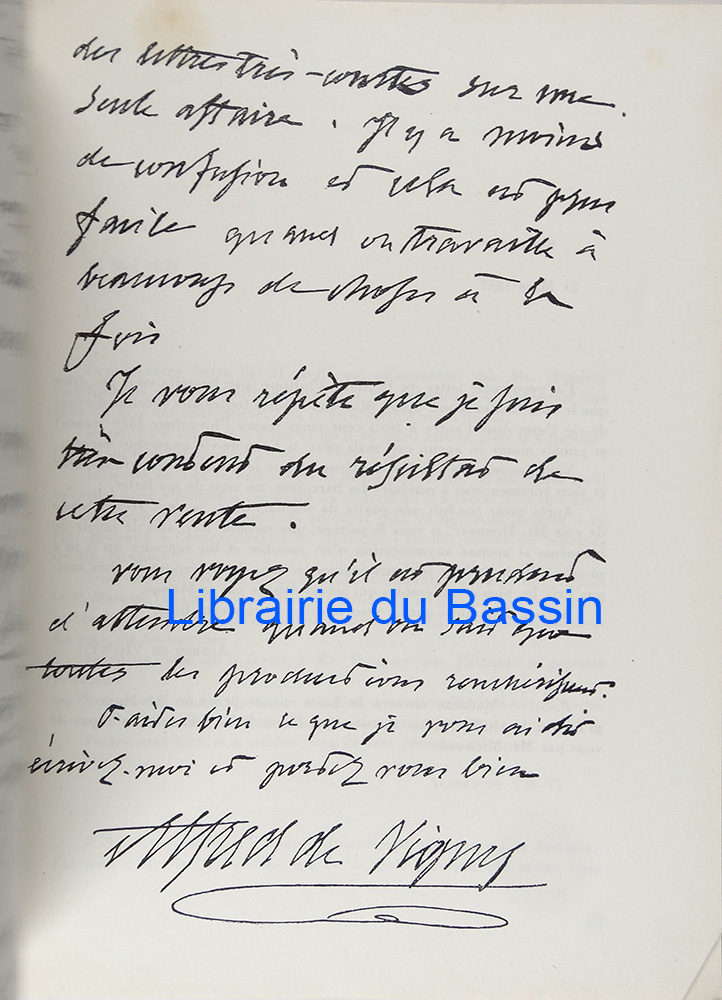 des lettres très-courtes sur une
seule affaire. Il y a moins
de confusion et cela est plus
facile quand on travaille à
beaucoup de choses à la
fois
Je vous répète que je suis
très content du résultat de
cette vente.
vous voyez qu'il est prudent
d'attendre quand on sait que
Librairie du Bassin
toutes les productions renchérissent.
bien ce que je vous ai dit
écrivez-moi et portez vous bien
Alfred de Vigny